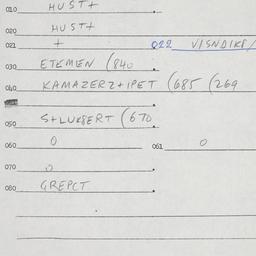 010 HUST+
020 HUST+
021 + 022 V/SNDIKP/
030 ETEMEN (840
040 KAMAZERZ+IPET (685 (269
050 S+LUKPERT (670
060 0 061 0
070 0
080 GREPCT